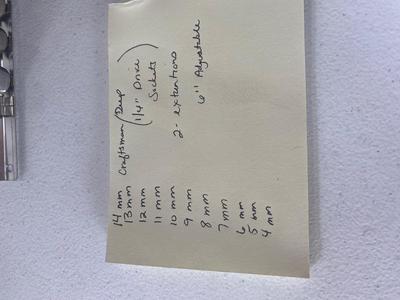 14 mm Craftsman (Deep
13 mm 1/4" Drive
12 mm Sockets)
11 mm
10 mm 2- extentions
9 mm
8 mm 6" Adjustable
7 mm
6 mm
5 mm
4 mm